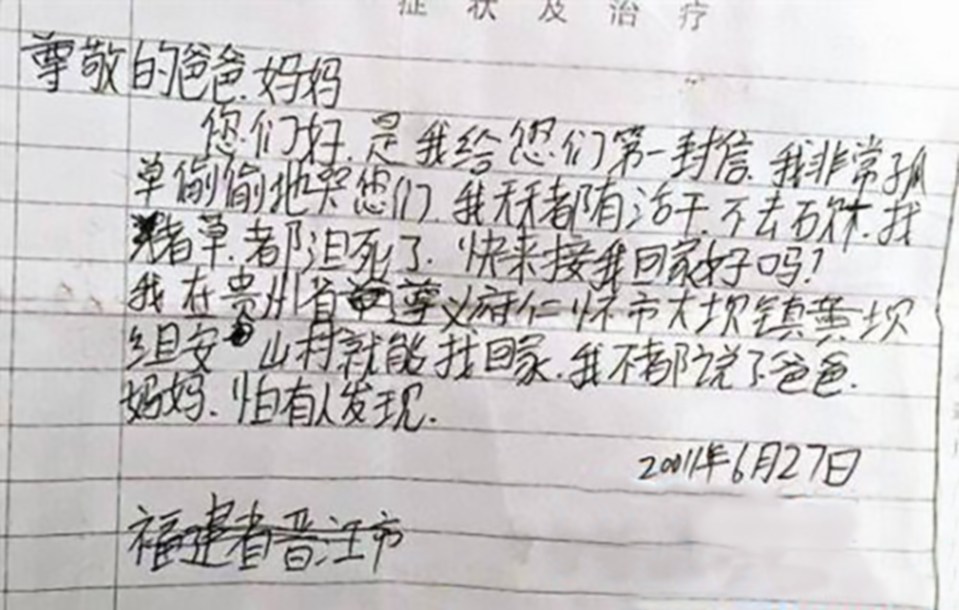 症状及治疗
尊敬的爸爸.妈妈
您们好.是我给您们第一封信.我非常孤
单偷偷地哭您们.我天天都有活干.不去石林.找
猪草.都泹死了.快来接我回家好吗!
我在贵州省尊义府仁怀市大坝镇黄坝
组安山村就能找回家.我不都说了爸爸.
妈妈.怕有人发现.
20011年6月27日
福建省晋江市